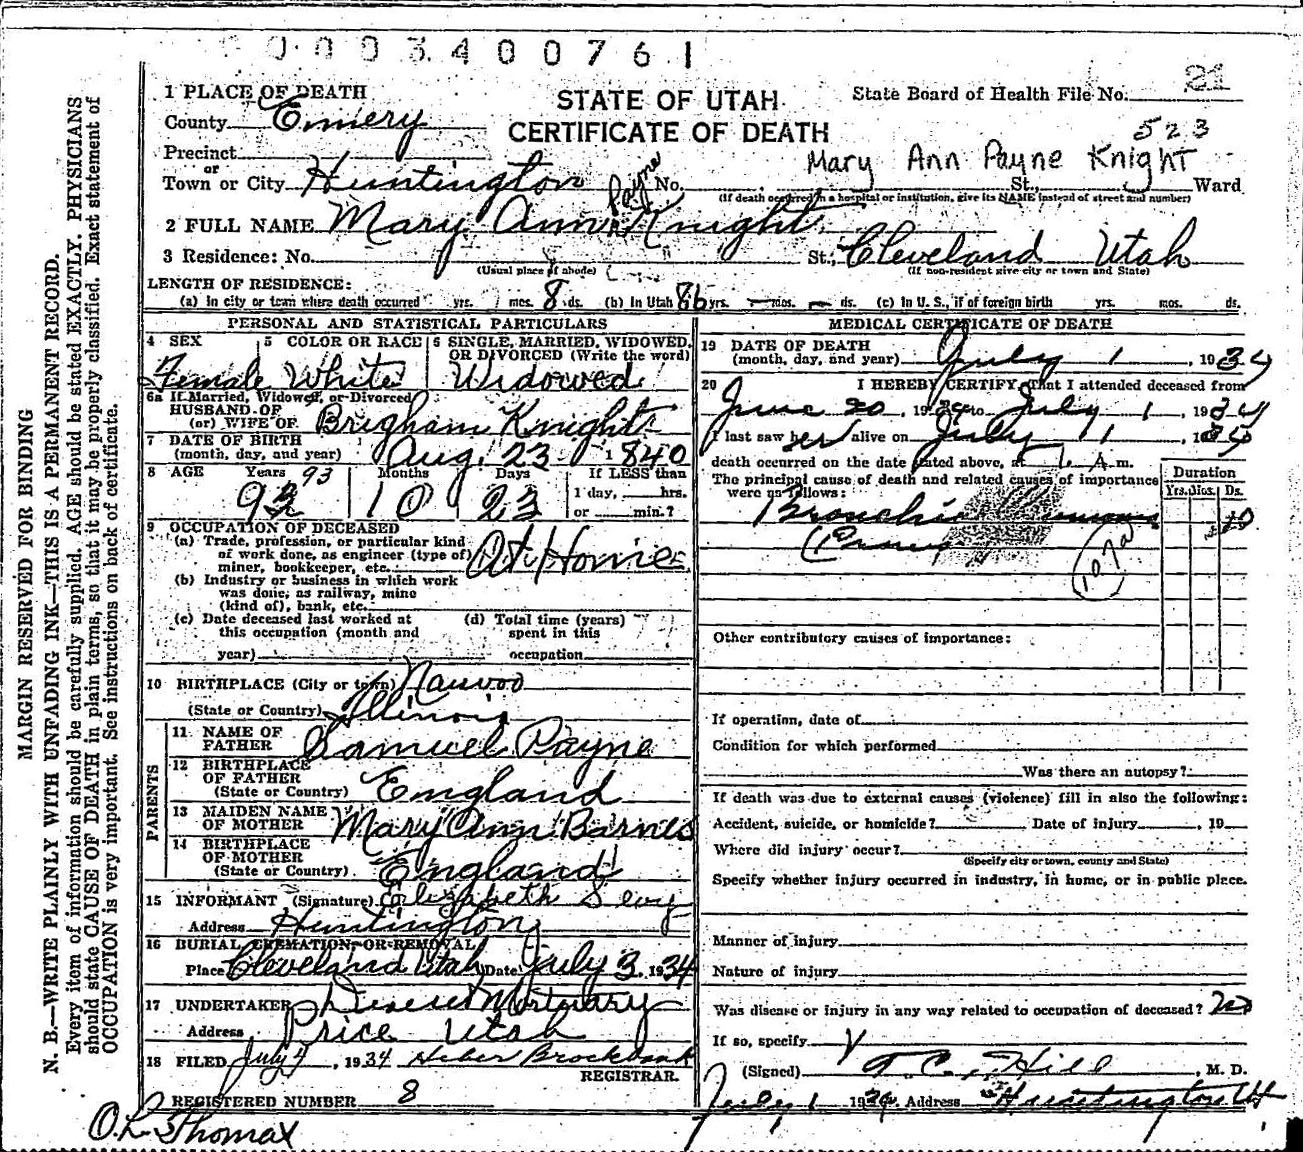 0003400761
1 PLACE OF DEATH
STATE OF UTAH
CERTIFICATE OF DEATH
State Board of Health File No. 21
523
County Emery
Precinct
or
Town or City Huntington No. St., Ward
Mary Ann Payne Knight
(If death occurred in a hospital or institution, give its NAME instead of street and number)
2 FULL NAME Mary Ann Payne Knight
3 Residence: No. St.; Cleveland Utah
(Usual place of abode) (If non-resident give city or town and State)
LENGTH OF RESIDENCE:
(a) In city or town where death occurred yrs. mos. 8 ds. (b) In Utah 86 yrs. — mos. — ds. (c) In U. S., if of foreign birth yrs. mos. ds.
PERSONAL AND STATISTICAL PARTICULARS
4 SEX Female
5 COLOR OR RACE White
6 SINGLE, MARRIED, WIDOWED, OR DIVORCED (Write the word) Widowed
6a If Married, Widowed, or Divorced
HUSBAND OF
(or) WIFE OF Brigham Knight
7 DATE OF BIRTH
(month, day, and year) Aug. 23 1840
8 AGE Years Months Days If LESS than
93
93 10 23 1 day, hrs.
or min.?
9 OCCUPATION OF DECEASED
(a) Trade, profession, or particular kind of work done, as engineer (type of) miner, bookkeeper, etc. At Home
(b) Industry or business in which work was done, as railway, mine (kind of), bank, etc.
(c) Date deceased last worked at this occupation (month and year)
(d) Total time (years) spent in this occupation
10 BIRTHPLACE (City or town) Nauvoo
(State or Country) Illinois
PARENTS
11 NAME OF FATHER Samuel Payne
12 BIRTHPLACE OF FATHER
(State or Country) England
13 MAIDEN NAME OF MOTHER Mary Ann Barnes
14 BIRTHPLACE OF MOTHER
(State or Country) England
15 INFORMANT (Signature) Elizabeth
Address Huntington
16 BURIAL, CREMATION, OR REMOVAL
Place Cleveland Utah Date July 3, 1934
17 UNDERTAKER Deseret Mortuary
Address Price Utah
18 FILED July 4, 1934 Heber Brockbank
REGISTRAR.
REGISTERED NUMBER 8
O. L. Thomas
MEDICAL CERTIFICATE OF DEATH
19 DATE OF DEATH
(month, day, and year) July 1, 1934
20 I HEREBY CERTIFY, That I attended deceased from
June 20, 1934 to July 1, 1934
I last saw her alive on July 1, 1934
death occurred on the date stated above, at 1. A. m.
The principal cause of death and related causes of importance
were as follows:
Duration
Yrs. Mos. Ds.
10
(107a)
Other contributory causes of importance:
If operation, date of
Condition for which performed
Was there an autopsy?
If death was due to external causes (violence) fill in also the following:
Accident, suicide, or homicide? Date of injury , 19
Where did injury occur?
(Specify city or town, county and State)
Specify whether injury occurred in industry, in home, or in public place.
Manner of injury
Nature of injury
Was disease or injury in any way related to occupation of deceased? no
If so, specify
(Signed) T. C. Hill, M. D.
July 1 1934. Address Huntington Ut
MARGIN RESERVED FOR BINDING
N. B.—WRITE PLAINLY WITH UNFADING INK—THIS IS A PERMANENT RECORD.
Every item of information should be carefully supplied. AGE should be stated EXACTLY. PHYSICIANS
should state CAUSE OF DEATH in plain terms, so that it may be properly classified. Exact statement of
OCCUPATION is very important. See instructions on back of certificate.